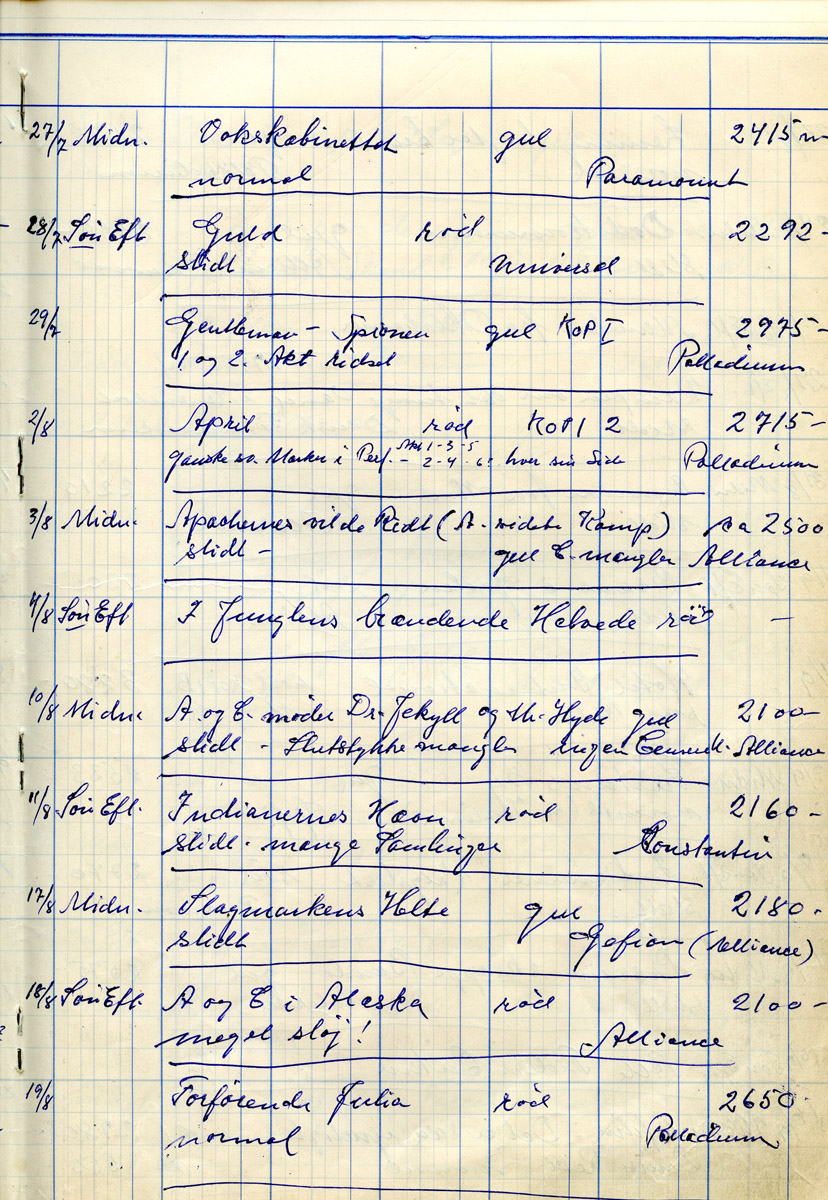 27/7 Midn. Vokskabinettet gul 2415 m
normal Paramount
28/7 Søn Eft Guld rød 2292-
slidt Universal
29/7 Gentleman-Spionen gul KOPI 2975-
1 og 2. Akt ridset Palladium
2/8 April rød KOPI 2 2715-
ganske sv. Mærker i Perf. Akt 1-3-5
- 2-4-6: hver sin Side Palladium
3/8 Midn. Apachernes vilde Ridt (A. sidste Kamp) ca 2500
slidt - gul C. mangler Alliance
4/8 Søn Eft I Junglens brændende Helvede rød -
10/8 Midn. A og C. møder Dr. Jekyll og Mr. Hyde gul 2100-
slidt - Slutstykke mangler ingen Censurk. Alliance
11/8 Søn Eft. Indianernes Hævn rød 2160-
slidt. mange Samlinger Constantin
17/8 Midn. Slagmarkens Helte gul 2180-
slidt Gefion (Alliance)
18/8 Søn Eft. A og C i Alaska rød 2100-
meget sløj! Alliance
19/8 Forførende Julia rød 2650
normal Palladium